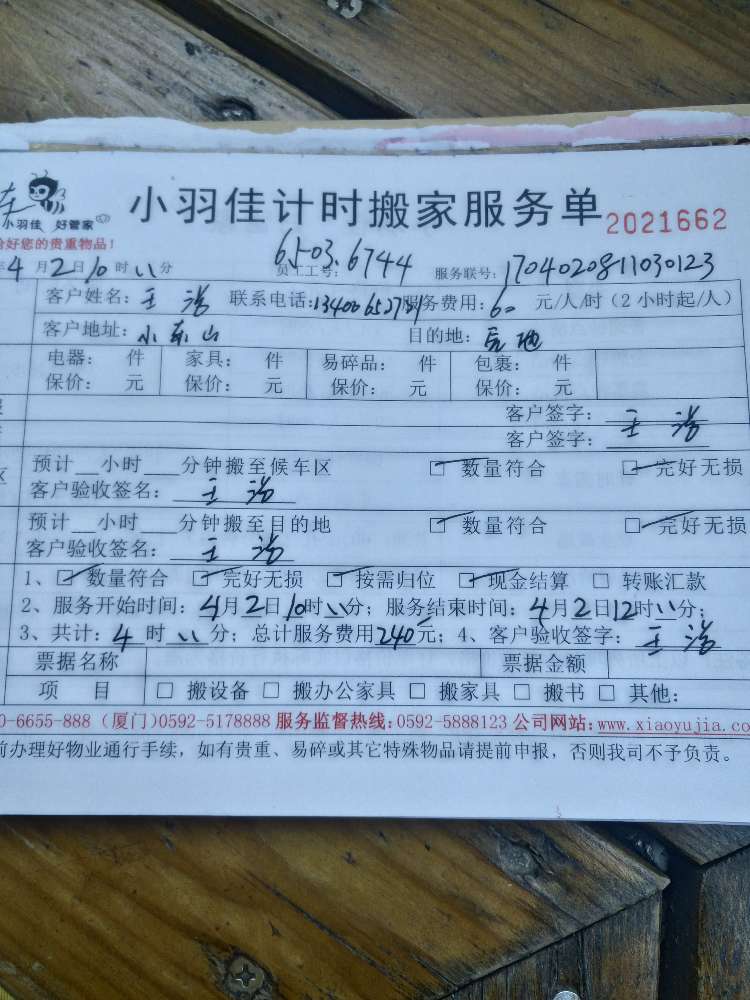 小羽佳 好管家
小羽佳计时搬家服务单 2021662
好您的贵重物品！
4月2日10时 分 员工工号：6503.6744 服务联号：1704020811030123
客户姓名：王 联系电话： 服务费用：60 元/人/时（2小时起/人）
客户地址：小东山 目的地：
电器： 件 家具： 件 易碎品： 件 包裹： 件
保价： 元 保价： 元 保价： 元 保价： 元
客户签字：王
客户签字：
预计__小时___分钟搬至候车区 □ 数量符合 □ 完好无损
客户验收签名：王
预计__小时___分钟搬至目的地 □ 数量符合 □ 完好无损
客户验收签名：王
1、□ 数量符合 □ 完好无损 □ 按需归位 □ 现金结算 □ 转账汇款
2、服务开始时间：4月2日10时 分；服务结束时间：4月2日12时 分；
3、共计：4时 分；总计服务费用240元；4、客户验收签字：王
票据名称 票据金额
项 目 □ 搬设备 □ 搬办公家具 □ 搬家具 □ 搬书 □ 其他：
0-6655-888（厦门）0592-5178888 服务监督热线:0592-5888123 公司网站:www.xiaoyujia.co
前办理好物业通行手续，如有贵重、易碎或其它特殊物品请提前申报，否则我司不予负责。